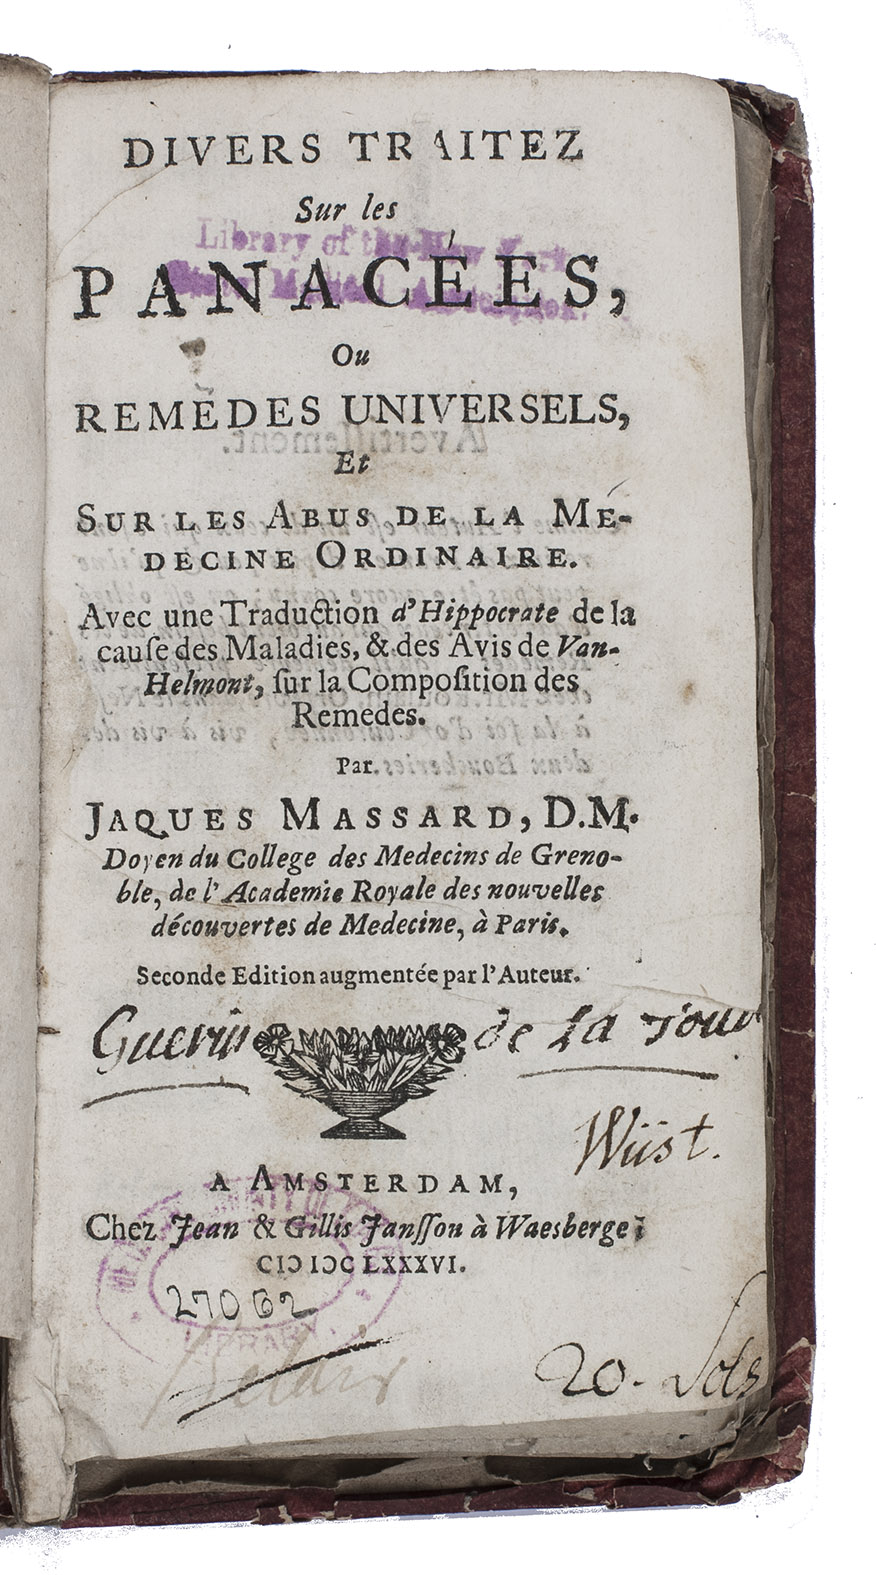 DIVERS TRAITEZ
Sur les
Library of the New York
PANACÉES,
Ou
REMEDES UNIVERSELS,
Et
SUR LES ABUS DE LA MÉ-
DECINE ORDINAIRE.
Avec une Traduction d'Hippocrate de la
cauſe des Maladies, & des Avis de Van-
Helmont, ſur la Compoſition des
Remedes.
Par
JAQUES MASSARD, D.M.
Doyen du College des Medecins de Greno-
ble, de l'Academie Royale des nouvelles
découvertes de Medecine, à Paris.
Seconde Edition augmentée par l'Auteur.
Guerin de La Tour
Wüst.
A AMSTERDAM,
Chez Jean & Gillis Janſſon à Waesberge;
CIƆ IƆC LXXXVI.
27062
LIBRARY
20. Sols